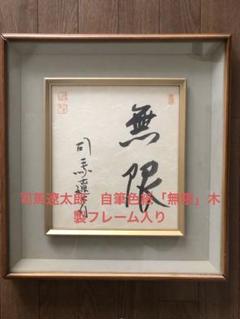 無限
司馬遼太郎
司馬遼太郎　自筆色紙「無限」木
製フレーム入り